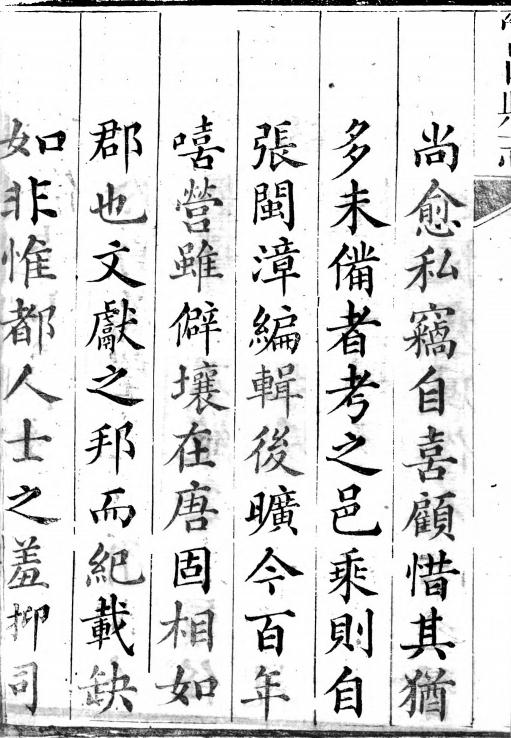 尚愈私竊自喜顧惜其猶
多未備者考之邑乘則自
張閩漳編輯後曠今百年
嘻營雖僻壤在唐固相如
郡也文獻之邦而紀載缺
如非惟都人士之羞抑司